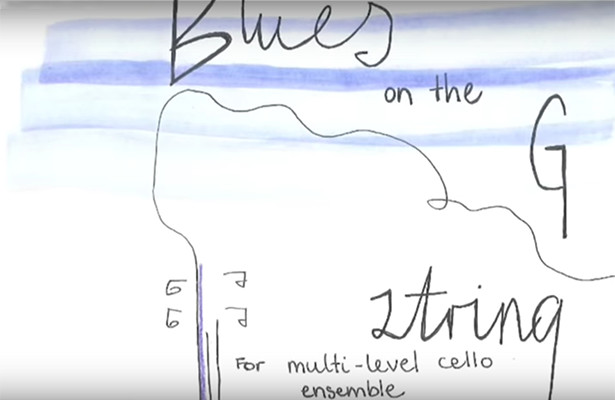 Blues
on the
G
string
For multi-level cello
ensemble